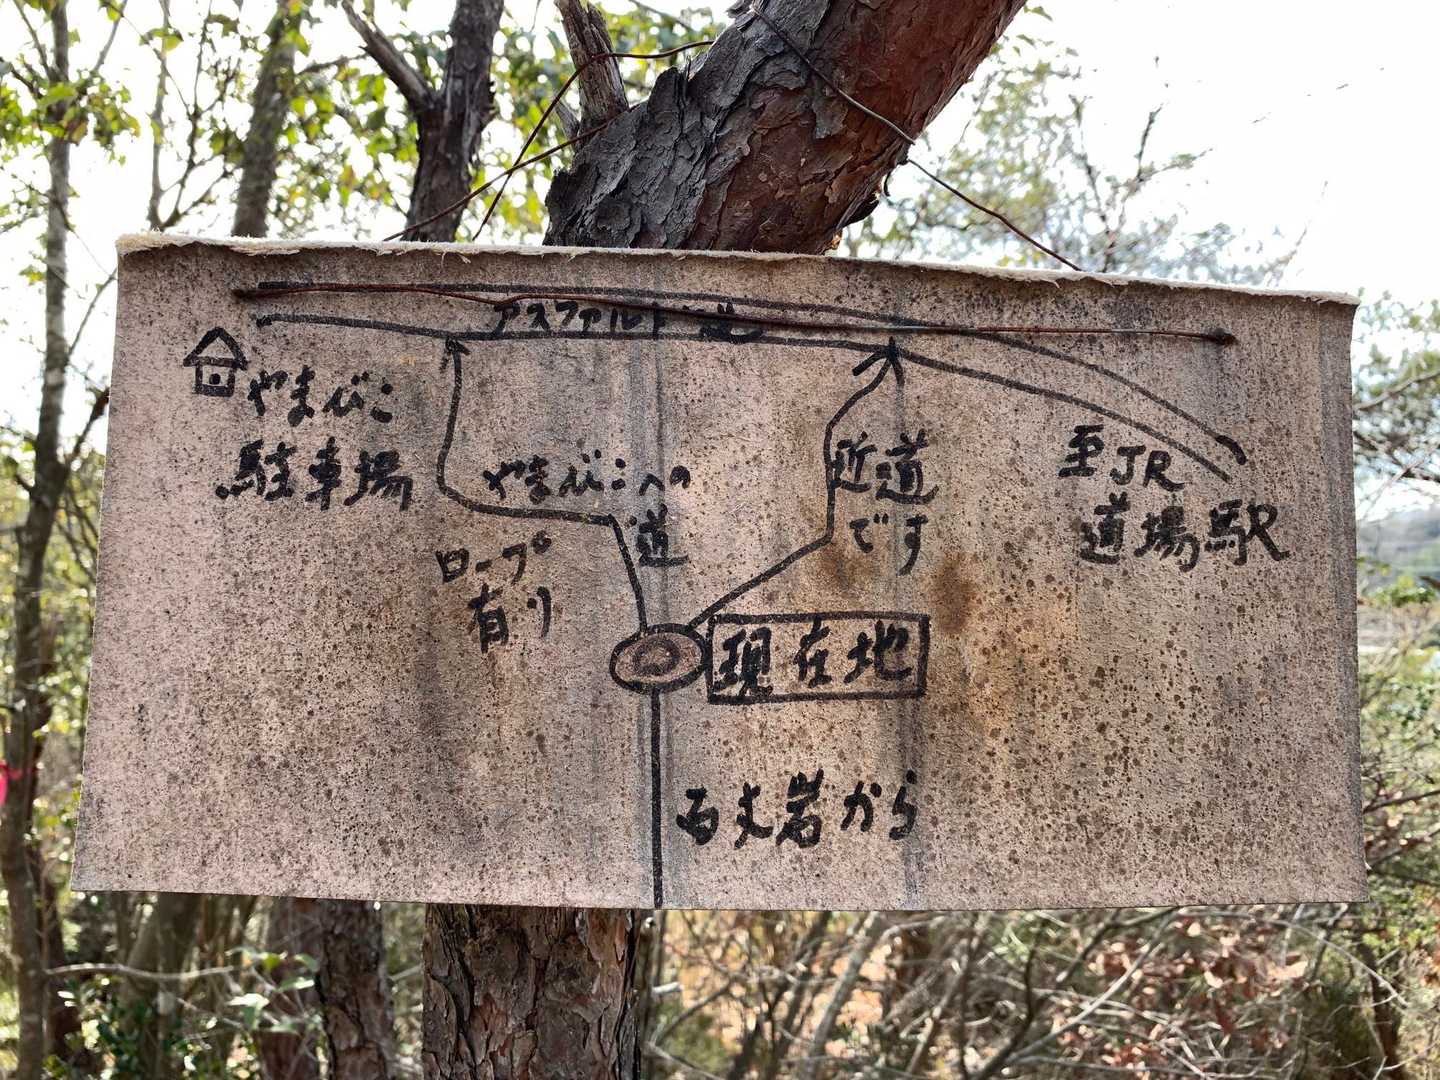 アスファルト道
やまびこ
駐車場
やまびこへの
道
近道
です
至JR
道場駅
ロープ
有り
現在地
百丈岩から